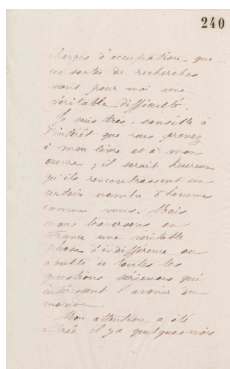 240
chargés d'occupation, que
ces sortes de recherches
sont pour moi une
véritable difficulté.
Je suis très sensible à
l'intérêt que vous prenez
à mon livre et à mon
œuvre ; il serait heureux
qu'ils rencontrassent un
certain nombre d'hommes
comme vous. Mais
nous traversons en
France une véritable
phase d'indifférence
à toutes les
questions sérieuses qui
intéressent l'avenir du
Mon attention a été
attirée il y a quelques mois